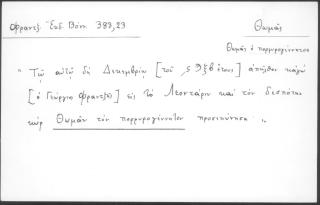 Φραντζ. Ἐκδ. Βόνν. 389,23 Θωμᾶς
Θωμᾶς ὁ πορφυρογέννητος
" Τῷ αὐτῷ δὴ Δεκεμβρίῳ [τοῦ ϛϠξβ ἔτους] ἀπῆλθον κἀγὼ
[ὁ Γεώργιος Φραντζῆς] εἰς τὸ Λεοντάριν καὶ τὸν δεσπότην
κὺρ Θωμᾶν τὸν πορφυρογέννητον προσεκύνησα ".